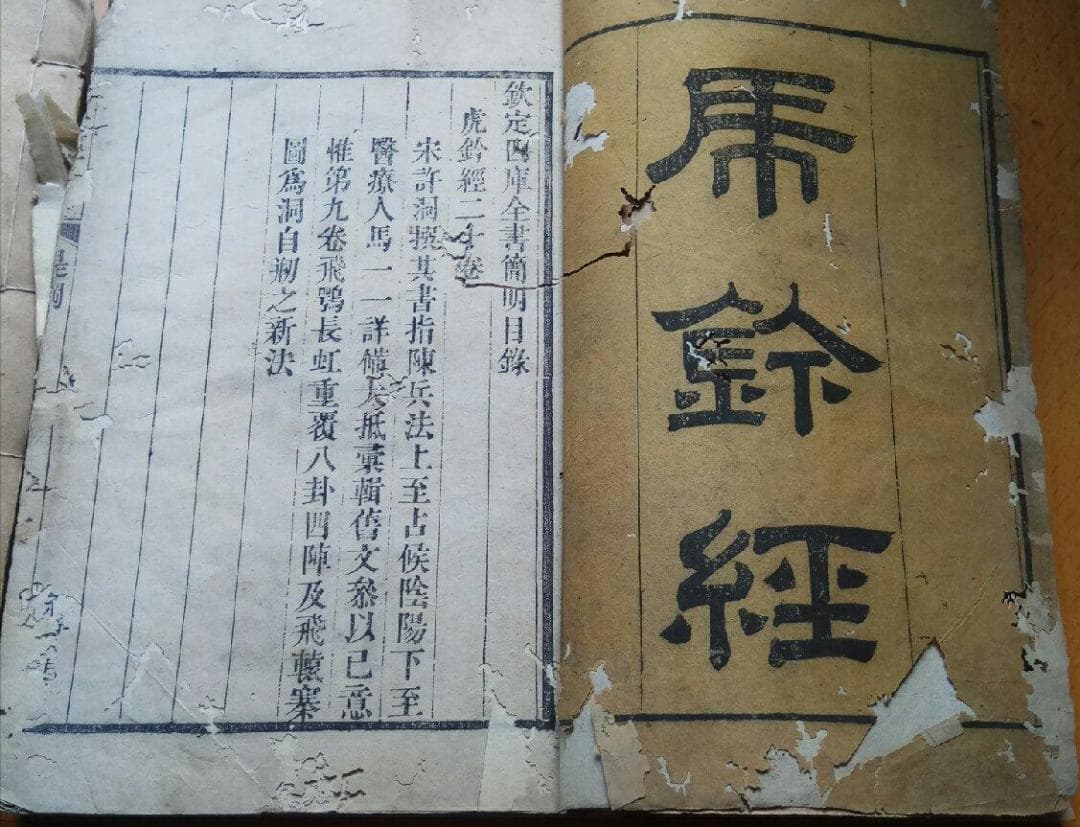 虎鈐經
欽定四庫全書簡明目錄
虎鈐經二十卷
宋許洞撰其書指陳兵法上至占候陰陽下至
醫療人馬一一詳備大抵彙輯舊文叅以已意
惟第九卷飛鶚長虹重覆八卦四陣及飛轅寨
圖爲洞自刱之新法